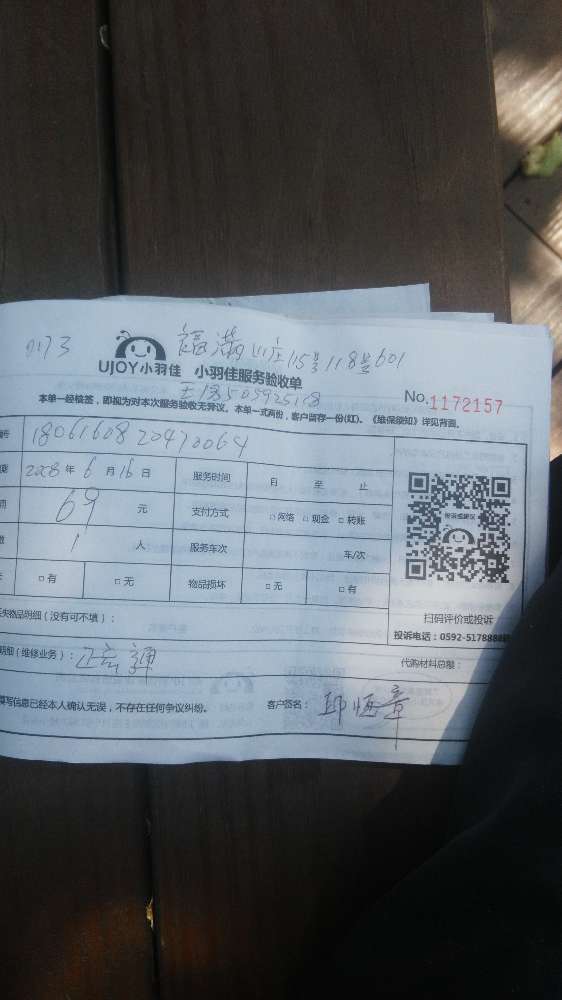 福满山庄115号118号601
UJOY小羽佳 小羽佳服务验收单
本单一经核签，即视为对本次服务验收无异议。本单一式两份，客户留存一份(红)。《维保须知》详见背面。
No.1172157
号 1806160820470064
2008年6月16日 服务时间 自 至 止
69 元 支付方式 □网络 □现金 □转账
1 人 服务车次 车/次
□有 □无 物品损坏 □无 □有
投诉或建议
扫码评价或投诉
投诉电话：0592-5178888
失物品明细（没有可不填）：
明细（维修业务）： 代购材料总额：
填写信息已经本人确认无误，不存在任何争议纠纷。 客户签名：